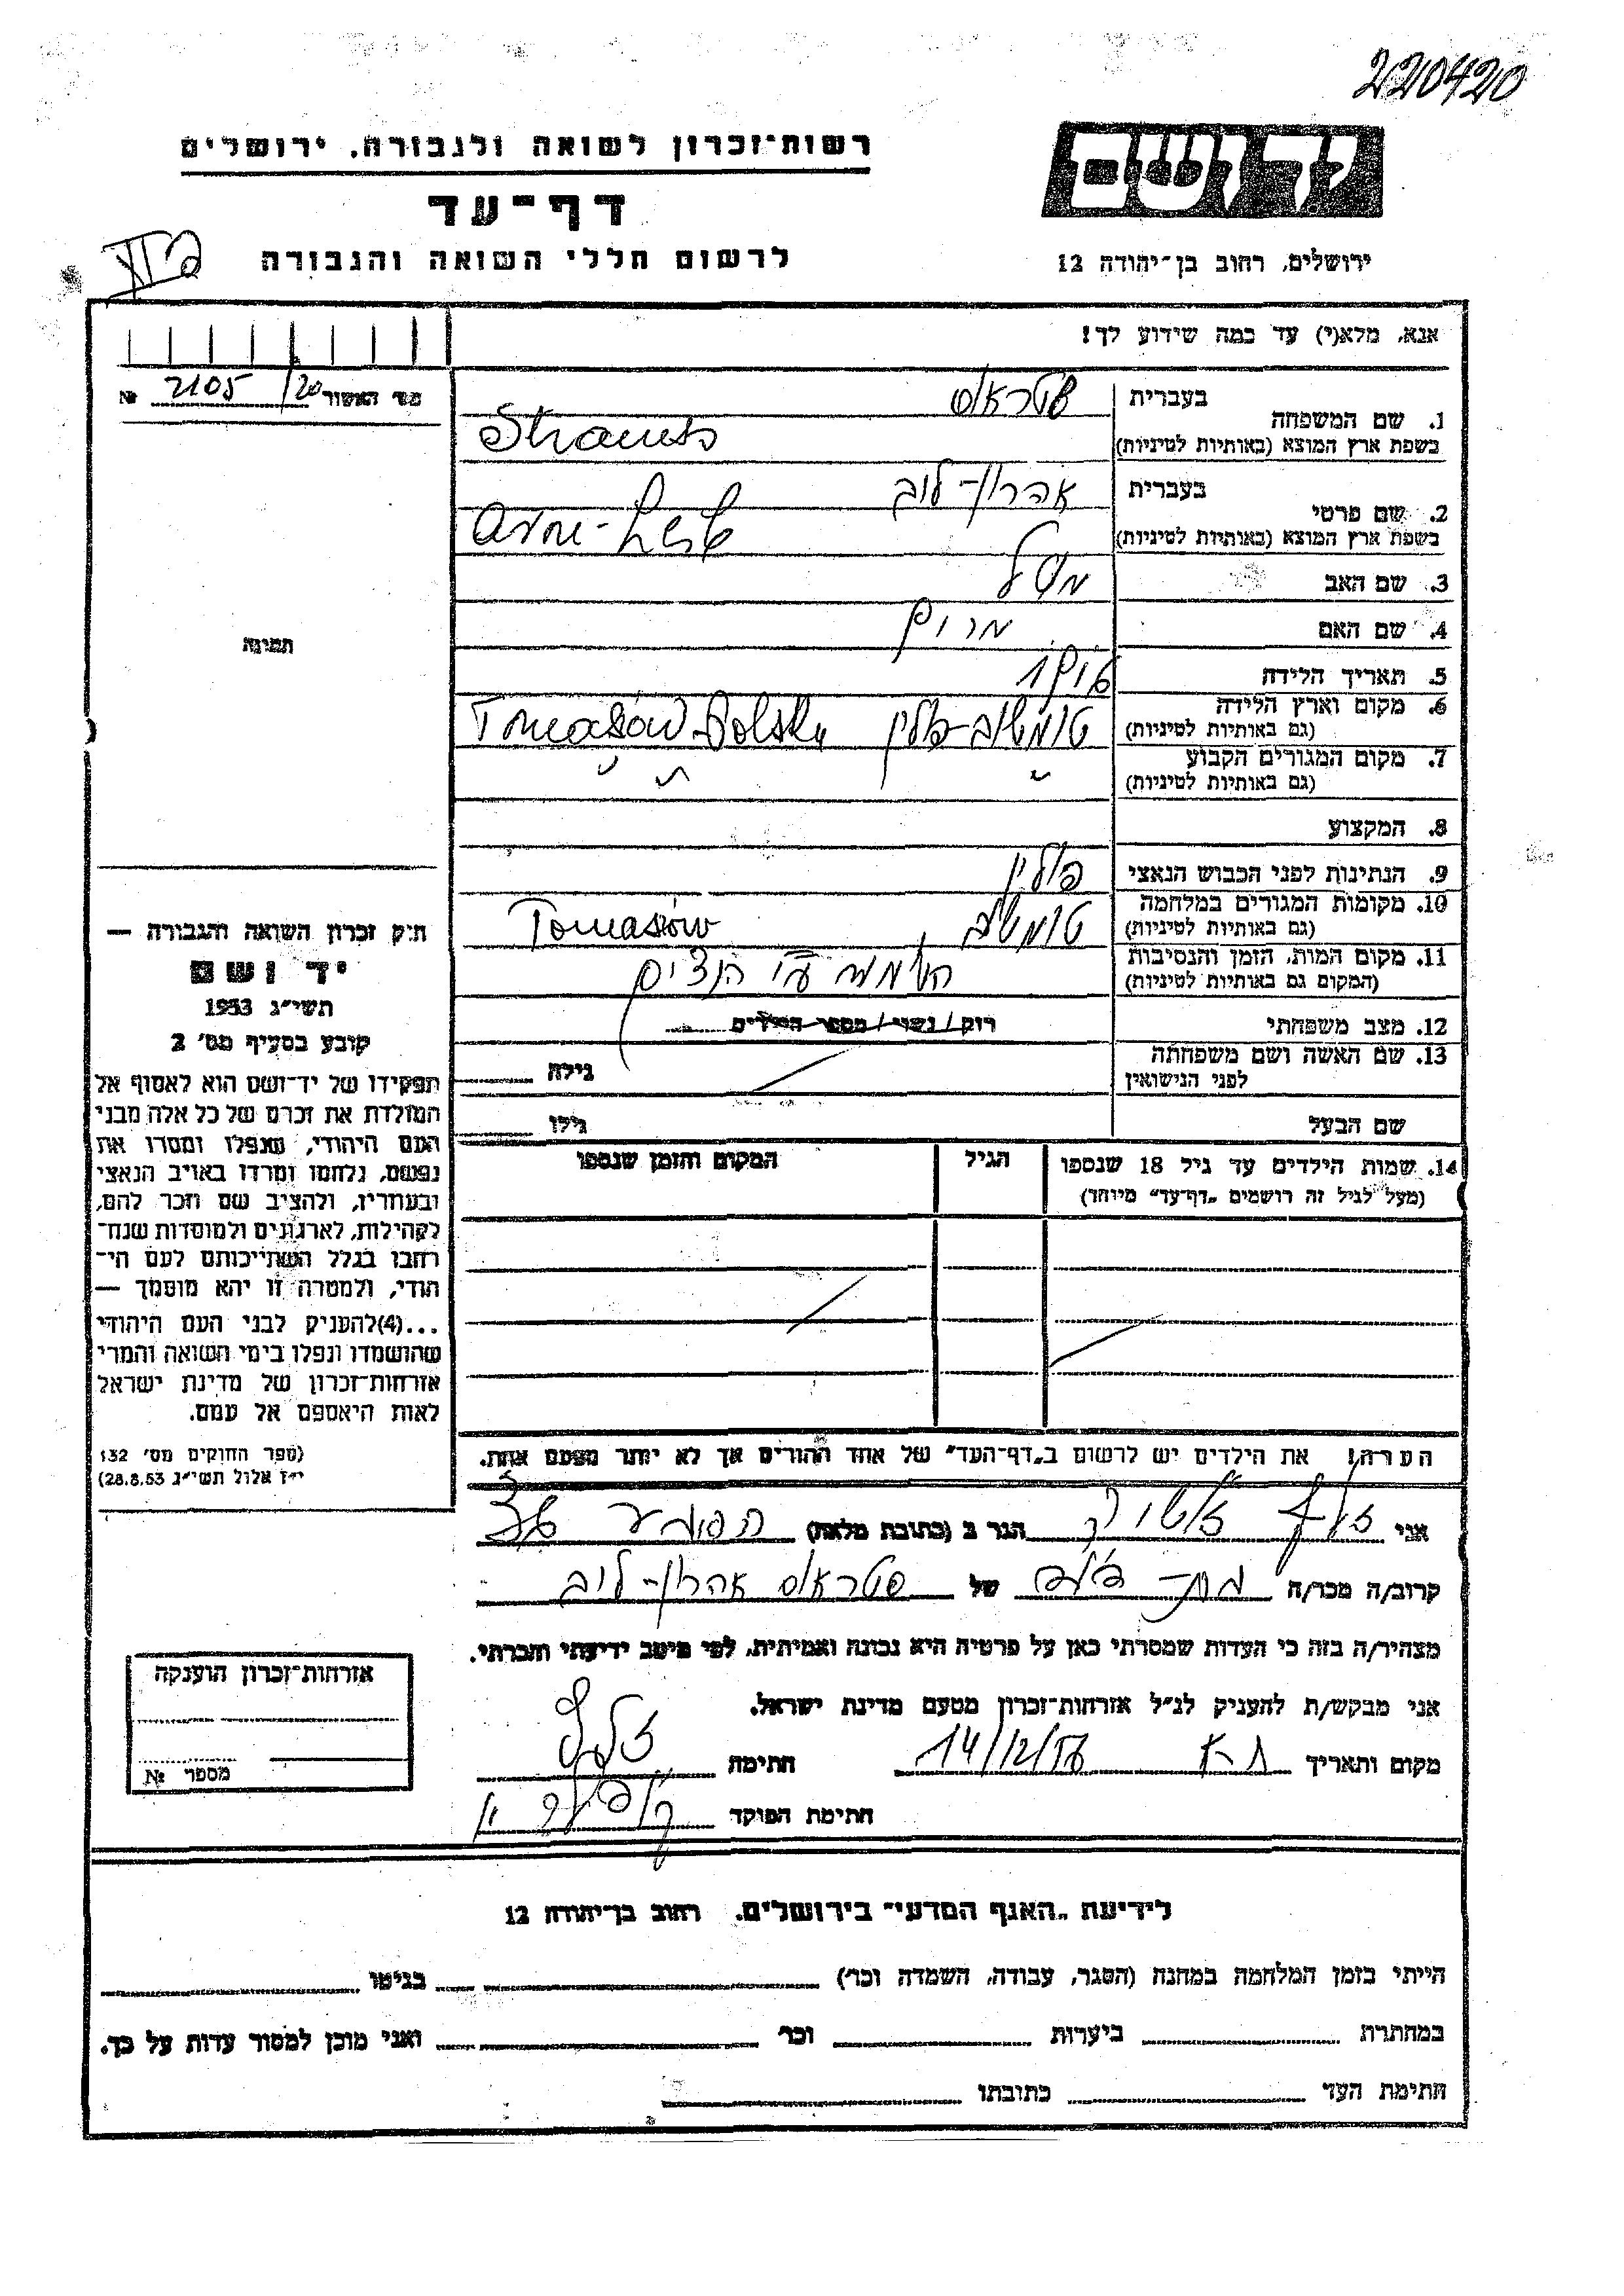 220420
יד ושם
רשות־זכרון לשואה ולגבורה, ירושלים
דף־עד
לרשום חללי השואה והגבורה
ירושלים, רחוב בן־יהודה 12
אנא, מלא(י) עד כמה שידוע לך!
מס' האשור 20/ 2105 №
1. שם המשפחה
בעברית שטראוס
בשפת ארץ המוצא (באותיות לטיניות) Strauss
2. שם פרטי
בעברית אהרון-לוב
בשפת ארץ המוצא (באותיות לטיניות)
3. שם האב
4. שם האם מרים
5. תאריך הלידה
6. מקום וארץ הלידה
(גם באותיות לטיניות) טומשוב-פולין Tomaszów-Polska
7. מקום המגורים הקבוע
(גם באותיות לטיניות) " " "
8. המקצוע
9. הנתינות לפני הכבוש הנאצי פולין
10. מקומות המגורים במלחמה
(גם באותיות לטיניות) טומשוב, Tomaszów
11. מקום המות, הזמן והנסיבות
(המקום גם באותיות לטיניות) הושמד ע"י הנצים
12. מצב משפחתי רוק/נשוי/מספר הילדים
13. שם האשה ושם משפחתה
לפני הנישואין גילה
שם הבעל גילו
14. שמות הילדים עד גיל 18 שנספו
(מעל לגיל זה רושמים „דף־עד" מיוחד)
הגיל
המקום והזמן שנספו
הערה! את הילדים יש לרשום ב„דף־העד" של אחד ההורים אך לא יותר מפעם אחת.
תמונה
חוק זכרון השואה והגבורה —
יד ושם
תשי"ג 1953
קובע בסעיף מס' 2
תפקידו של יד־ושם הוא לאסוף אל
המולדת את זכרם של כל אלה מבני
העם היהודי, שנפלו ומסרו את
נפשם, נלחמו ומרדו באויב הנאצי
ובעוזריו, ולהציב שם וזכר להם,
לקהילות, לארגונים ולמוסדות שנח־
רחבו בגלל השתייכותם לעם הי־
הודי, ולמטרה זו יהא מוסמך —
...(4)להעניק לבני העם היהודי
שהושמדו ונפלו בימי השואה והמרי
אזרחות־זכרון של מדינת ישראל
לאות היאספם אל עמם.
(ספר החוקים מס' 132
י"ז אלול תשי"ג 28.8.53)
אני הגר ב (כתובת מלאה)
קרוב/ה מכר/ה של שטראוס אהרון-לוב
מצהיר/ה בזה כי העדות שמסרתי כאן על פרטיה היא נכונה ואמיתית, לפי מיטב ידיעתי והכרתי.
אני מבקש/ת להעניק לנ"ל אזרחות־זכרון מטעם מדינת ישראל.
מקום ותאריך ת-א 14/12/56 חתימה
חתימת הפוקד
אזרחות־זכרון הוענקה
מספר №
לידיעת „האגף המדעי" בירושלים, רחוב בן־יהודה 12
הייתי בזמן המלחמה במחנה (הסגר, עבודה, השמדה וכר') בגיטו
במחתרת ביערות וכר' ואני מוכן למסור עדות על כך.
חתימת העד כתובתו